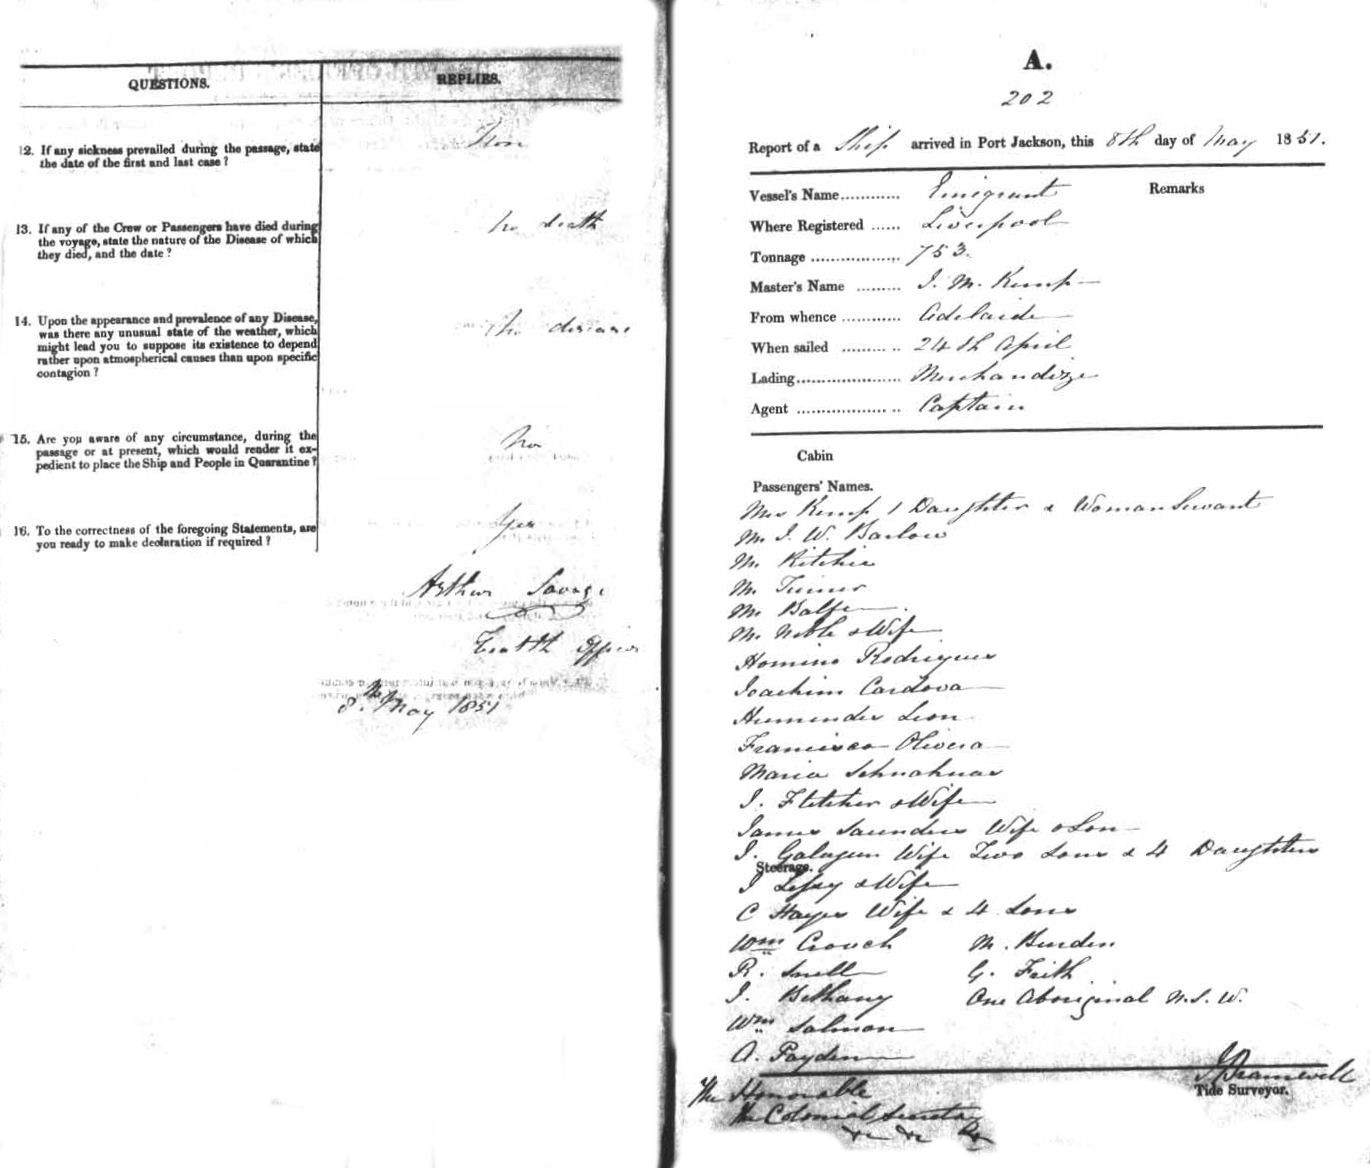 QUESTIONS.
REPLIES.
12. If any sickness prevailed during the passage, state
the date of the first and last case ?
13. If any of the Crew or Passengers have died during
the voyage, state the nature of the Disease of which
they died, and the date ?
no death
14. Upon the appearance and prevalence of any Disease,
was there any unusual state of the weather, which
might lead you to suppose its existence to depend
rather upon atmospherical causes than upon specific
contagion ?
no disease
15. Are you aware of any circumstance, during the
passage or at present, which would render it ex-
pedient to place the Ship and People in Quarantine ?
no
16. To the correctness of the foregoing Statements, are
you ready to make declaration if required ?
yes
Arthur Savage
Health Officer
8th May 1851
A.
202
Report of a Ship arrived in Port Jackson, this 8th day of May 1851.
Vessel's Name............ Emigrant
Remarks
Where Registered ...... Liverpool
Tonnage .................. 753.
Master's Name ......... I. M. Kemp
From whence ............ Adelaide
When sailed ............ 24th April
Lading..................... Merchandize
Agent ..................... Captain
Cabin
Passengers' Names.
Mrs Kemp 1 Daughter & Woman Servant
Mr. I. W. Barlow
Mr. Ritchie
Mr. Turner
Mr. Balfe
Mr. Noble & Wife
Rodrigues
Joachim Cardova
Leon
Francisco Olivera
Maria
I. Fletcher & Wife
James Saunders Wife & Son
I. Wife Two Sons & 4 Daughters
Steerage.
I & Wife
C Hayes Wife & 4 Sons
Wm Crouch M. Burden
R. Snell G. Faith
I. Bethany One Aboriginal N.S.W.
Wm Salmon
A. Payden
J Bramwell
Tide Surveyor.
The Honorable
the Colonial Secretary
&c &c &c